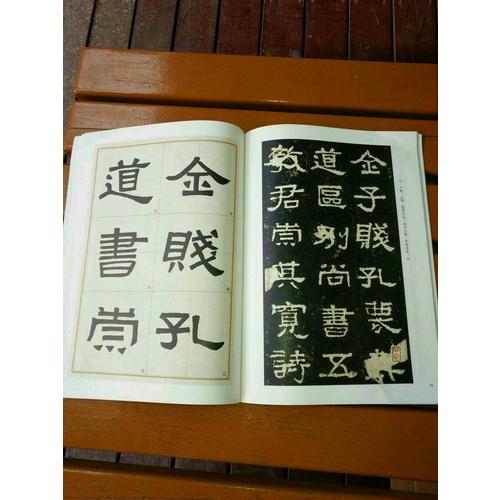 金子賤孔蔑其
道區別尚書五
教君崇其寬詩
金賤孔
道書崇